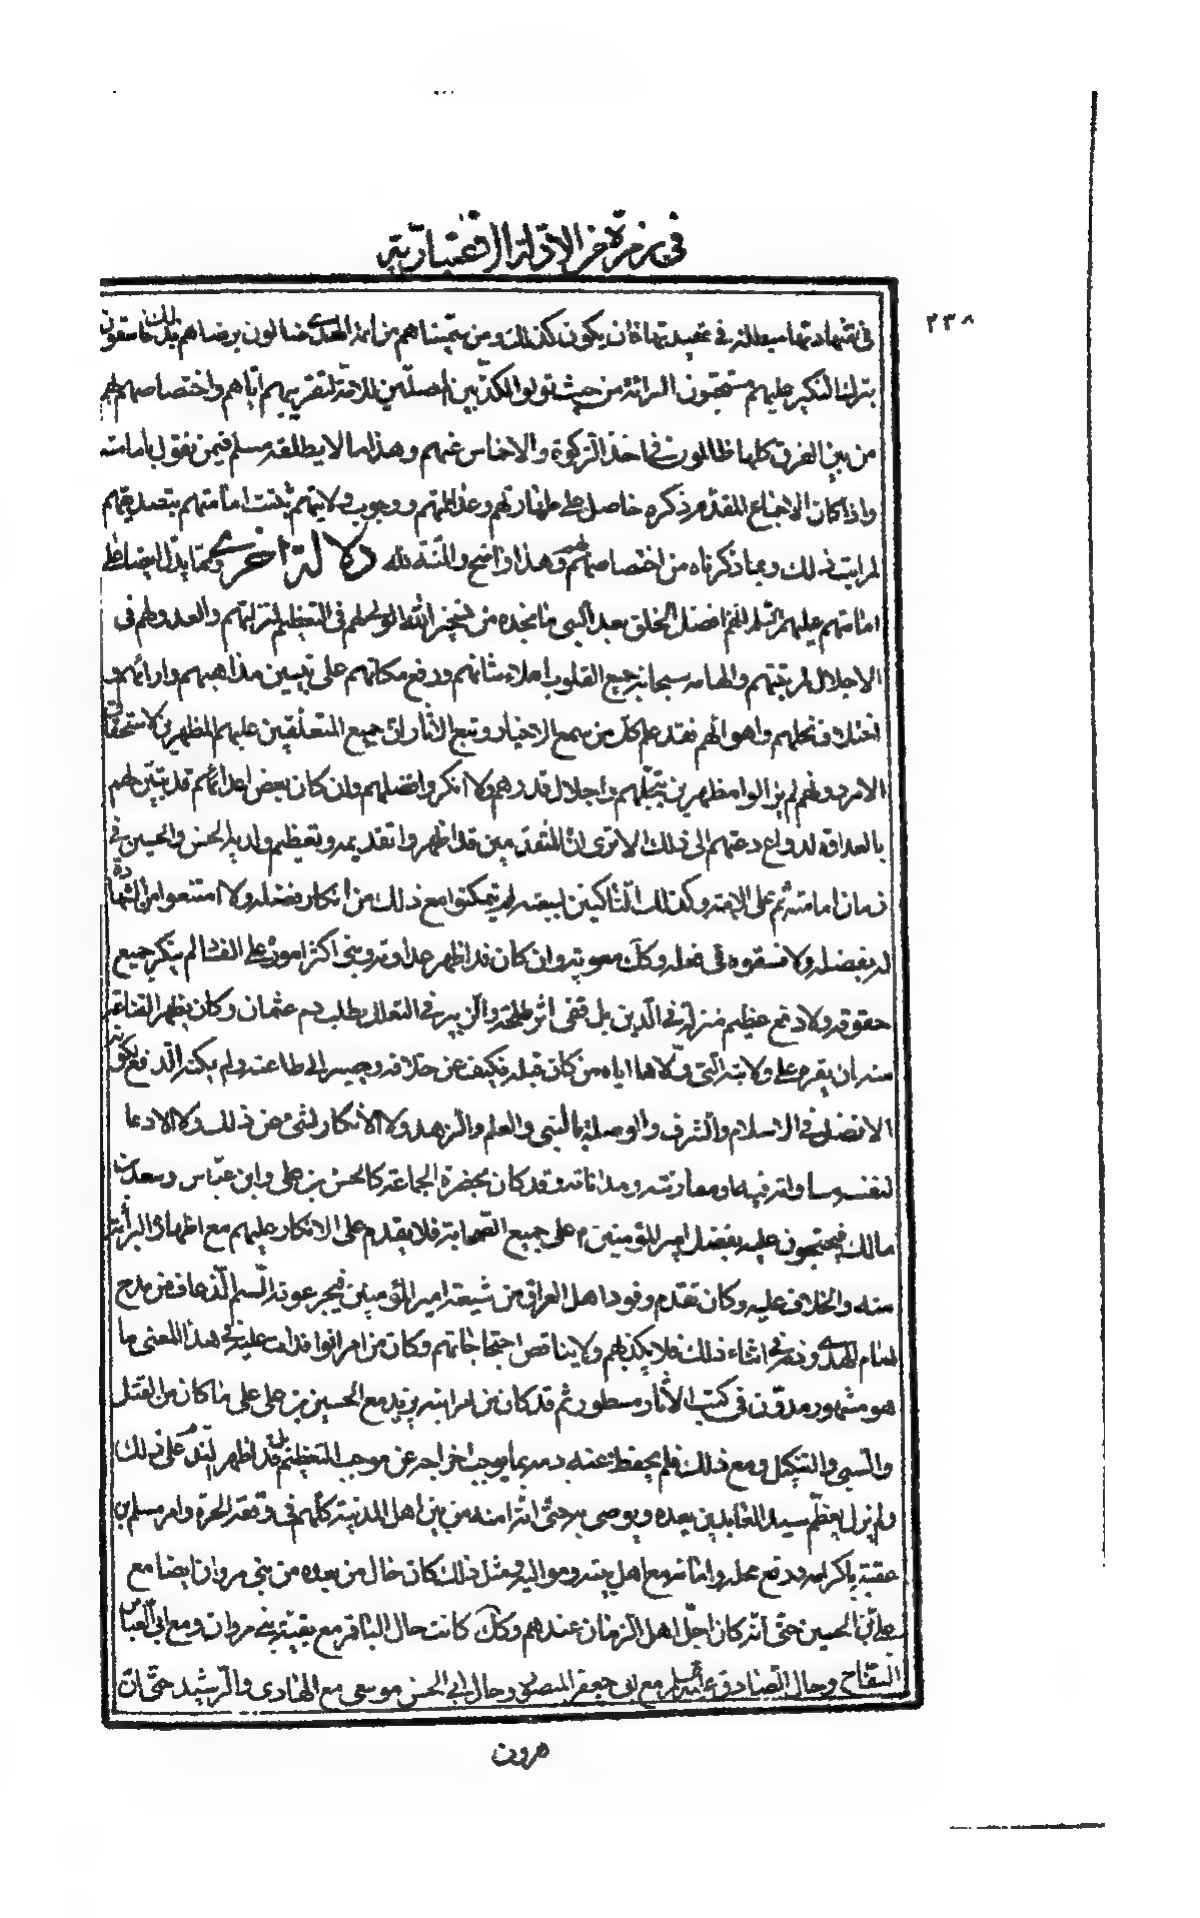 في نبذة من الادلة الاعتبارية
٢٣٨
في شهادتها مبطلة في عقيدتها فان يكون كذلك ومن سميناهم من ائمة الهدى ضالون برضاهم بذلك فاسقون
بترك النكير عليهم مستحقون البرائة من حيث تولوا الكذابين مضلين للامة لتقريبهم اياهم واختصاصهم بهم
من بين الفرق كلها ظالمون في اخذ الزكوة والاخماس عنهم وهذا ما لا يطلقه مسلم فيمن نقول بامامته
واذا كان الاجماع المقدم ذكره حاصل على طهارتهم وعدالتهم ووجوب ولايتهم ثبتت امامتهم بتصديقهم
لمراثبت ذلك وبما ذكرناه من اختصاصهم بهم وهذا واضح والمنة لله دلالة اخرى ومما يدل ايضا على
امامتهم عليهم السلام انهم افضل الخلق بعد النبي ما نجده من تسخير الله الولي لهم في التعظيم لمنزلتهم والعدو لهم في
الاجلال لمرتبتهم والهامه سبحانه جميع القلوب اعلاء شانهم ورفع مكانهم على تباين مذاهبهم وارائهم و
اختلاف نحلهم واهوائهم فقد علم كل من سمع الاخبار وتتبع الاثار ان جميع المتغلبين عليهم المظهرين لاستحقاق
الامر دونهم لم يزالوا مظهرين تبجيلهم واجلال قدرهم ولا انكروا فضلهم وان كان بعض اعدائهم قد تبين لهم
بالعداوة لدواع دعتهم الى ذلك الا ترى ان المتقدمين قد اظهروا تقديمه وتعظيم ولديه الحسن والحسين في
زمان امامته ثم على الامة وكذلك الناكثين لبيعته لم يتمكنوا مع ذلك من انكار فضله ولا امتنعوا من الشهادة
له بفضله ولا فسقوه في فعله وكذلك معوية وان كان قد اظهر عداوته وبنى اكثر اموره على الفساد لم ينكر جميع
حقوقه ولا دفع عظيم منزلته في الدين بل قفى اثر طلحة والزبير في التعلل بطلب دم عثمان وكان يظهر القناعة
منه ان يقره على ولايته التي ولاها اياه من كان قبله فيكف عن خلافه ويصير الى طاعته ولم يمكنه الدفع لكونه
الافضل في الاسلام والشرف والوصلة بالنبي والعلم والزهد ولا الانكار لشئ من ذلك ولا الادعا
لنفسه مساواته فيه او مقارنته ومداناته وقد كان بحضرة الجماعة كالحسن بن علي وابن عباس وسعد بن
مالك فيحتجون عليه بفضل امير المؤمنين ع على جميع الصحابة فلا يقدم على الانكار عليهم مع اظهاره البرائة
منه والخلاف عليه وكان تقدم وفود اهل العراق من شيعة امير المؤمنين فيجرعونه السم الذعاف من مدح
امام الهدى وذمه في اثناء ذلك فلا يكذبهم ولا يناقض احتجاجاتهم وكان من امر الوافدات عليه في هذا المعنى ما
هو مشهور مدون في كتب الاثار مسطور ثم قد كان من امر ابنه يزيد مع الحسين بن علي على ما كان من القتل
والسبي والتنكيل ومع ذلك فلم يحفظ عنه ذمه بما يوجب اخراجه عن موجب التعظيم بل قد اظهر الندم على ذلك
ولم يزل يعظم سيد العابدين بعده ويوصي به حتى انه امنه من بين اهل المدينة كلهم في وقعة الحرة وامر مسلم بن
عقبة باكرامه ورفع محله وامانه مع اهل بيته ومواليه ومثل ذلك كان حال من بعده من بني مروان ايضا مع
علي بن الحسين حتى انه كان اجل اهل الزمان عندهم وكذلك كانت حال الباقر مع بقية بني مروان ومع ابي العباس
السفاح وحال الصادق عليه السلم مع ابي جعفر المنصور وحال ابي الحسن موسى مع الهادي والرشيد حتى ان
هرون